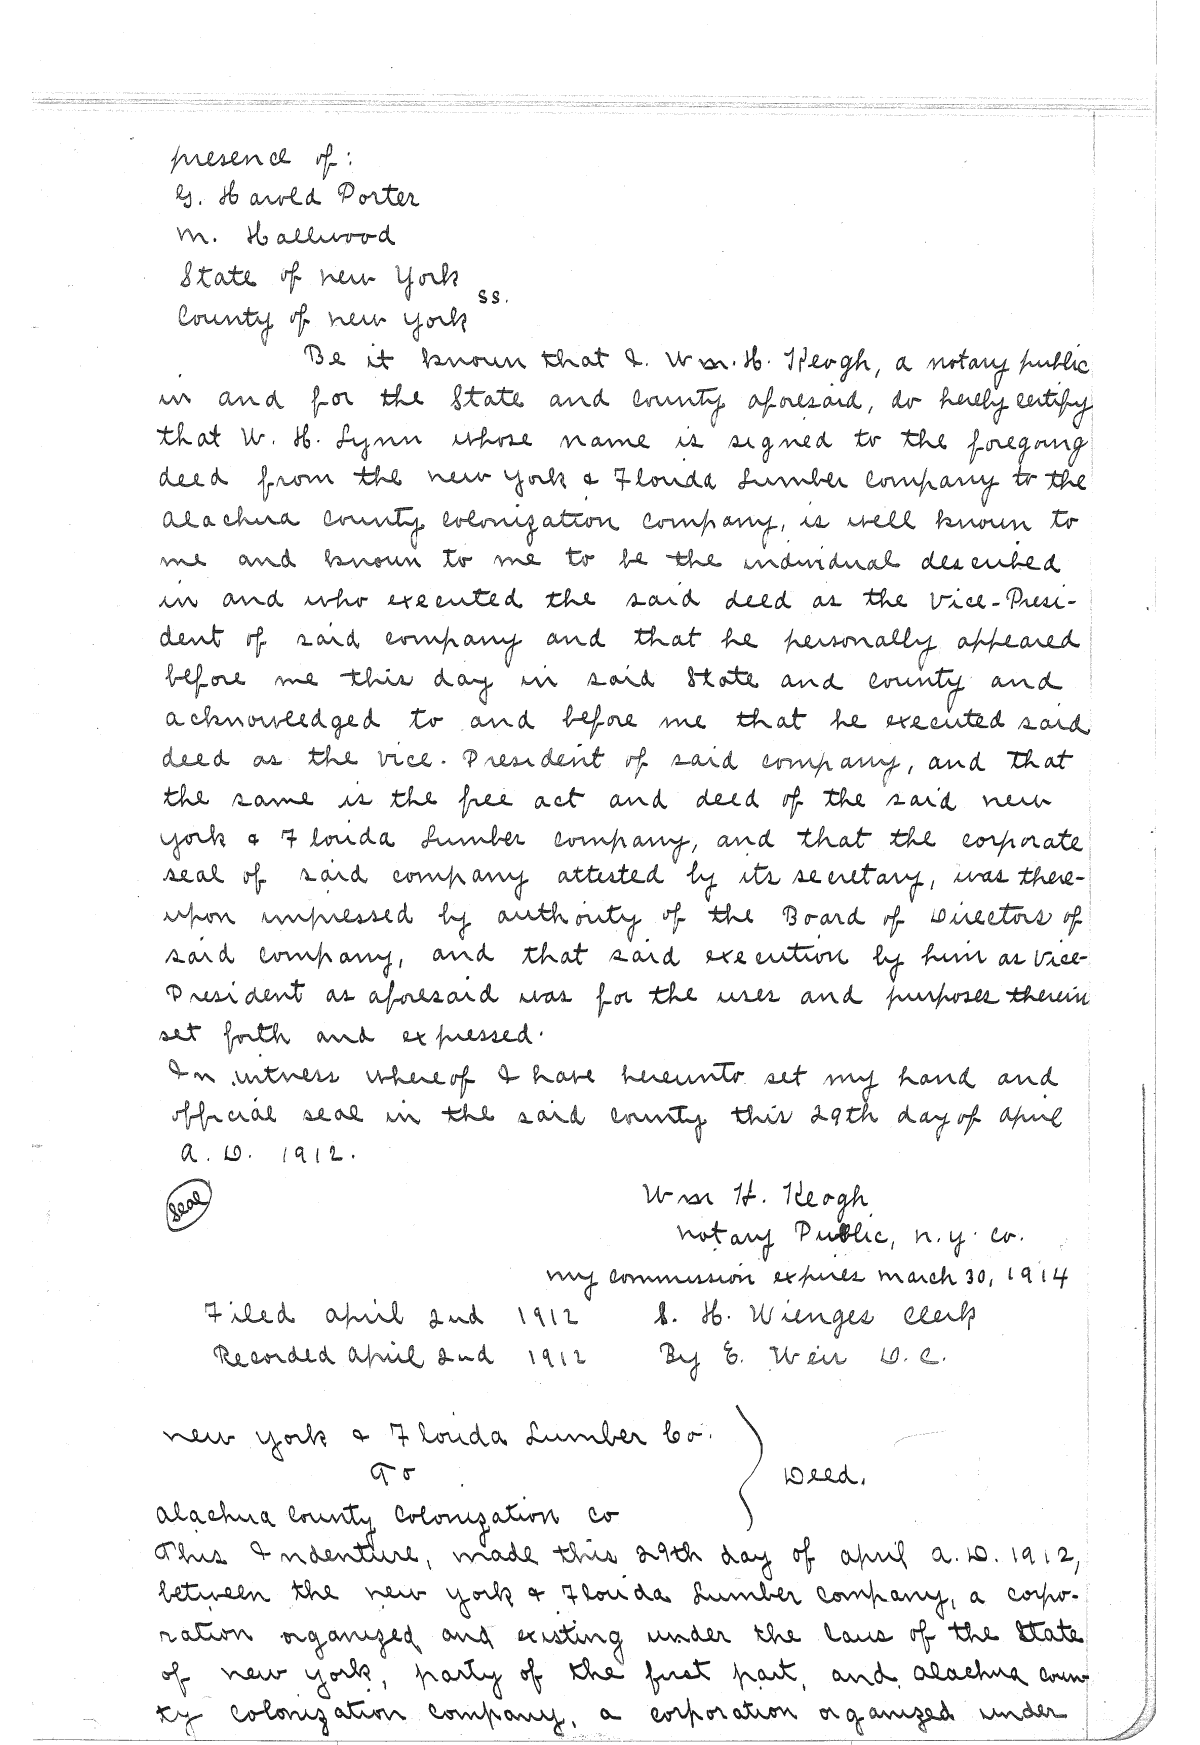 presence of:
G. Harold Porter
M. Hallwood
State of new York
ss.
County of new york
Be it known that I. Wm. H. Keogh, a notary public
in and for the State and county aforesaid, do hereby certify
that W. H. Lynn whose name is signed to the foregoing
deed from the new york & Florida Lumber company to the
alachua county colonization company, is well known to
me and known to me to be the individual described
in and who executed the said deed as the Vice-Presi-
dent of said company and that he personally appeared
before me this day in said State and county and
acknowledged to and before me that he executed said
deed as the vice. President of said company, and that
the same is the free act and deed of the said new
york & Florida Lumber company, and that the corporate
seal of said company attested by its secretary, was there-
upon impressed by authority of the Board of Directors of
said company, and that said execution by him as Vice-
President as aforesaid was for the uses and purposes therein
set forth and expressed.
In witness whereof I have hereunto set my hand and
official seal in the said county this 29th day of april
a. D. 1912.
Seal
Wm H. Keogh
notary Public, n.y. co.
my commission expires march 30, 1914
Filed april 2nd 1912 S. H. Wienges Clerk
Recorded april 2nd 1912 By E. Weir D.C.
new york & Florida Lumber Co.
To
Deed.
alachua county colonization co
This Indenture, made this 29th day of april a.D. 1912,
between the new york & Florida Lumber company, a corpo-
ration organized and existing under the laws of the State
of new york, party of the first part, and alachua coun
ty colonization company, a corporation organized under